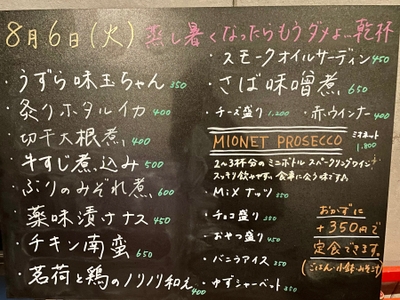 8月6日(火) 蒸し暑くなったらもうダメよ…乾杯
・うずら味玉ちゃん 350
・炙りホタルイカ 400
・切干大根煮 400
・牛すじ煮込み 500
・ぶりのみぞれ煮 600
・薬味漬けナス 450
・チキン南蛮 650
・茗荷と鶏のノリノリ和え 400
・スモークオイルサーディン 450
・さば味噌煮 650
・チーズ盛り 1.200 ・赤ウインナー 400
MIONET PROSECCO ミオネット 1.800
2〜3杯分のミニボトル スパークリングワイン
スッキリ飲みやすい。食事に合う味です
・MiXナッツ 350
・チョコ盛り 350
・おやつ盛り 450
・バニラアイス 350
・ゆずシャーベット 350
おかずに
+350円で
定食できます。
(ごはん・小鉢・みそ汁)